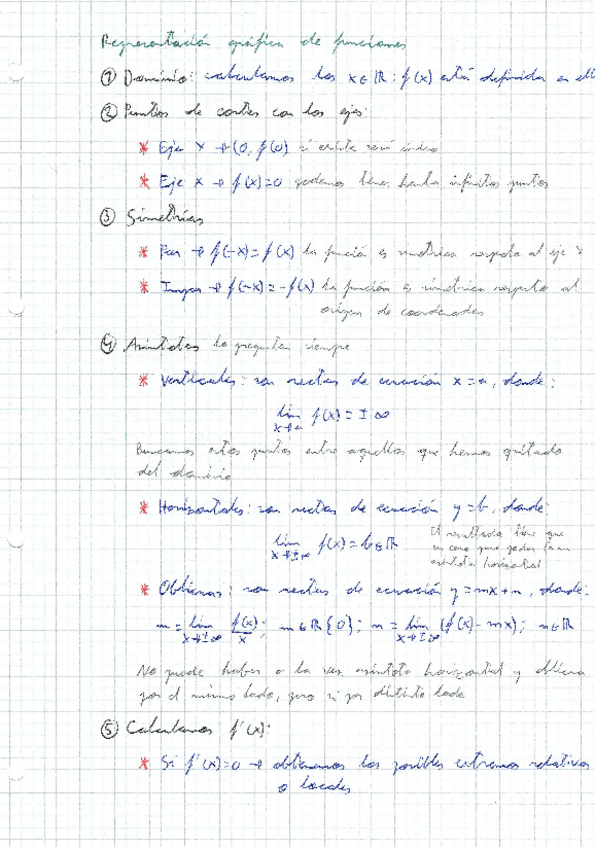 Representación gráfica de funciones
① Dominio: calculamos los x∈ℝ : f(x) está definida en ell
② Puntos de cortes con los ejes:
* Eje Y → (0, f(0) si existe será único
* Eje X → f(x)=0 podemos tener hasta infinitos puntos
③ Simetrías
* Par → f(-x)=f(x) la función es simétrica respecto al eje Y
* Impar → f(-x)=-f(x) la función es simétrica respecto al
origen de coordenadas
④ Asíntotas lo preguntan siempre
* Verticales: son rectas de ecuación x=a, donde:
lim f(x) = ±∞
x→a
Buscamos estos puntos entre aquellos que hemos quitado
del dominio
* Horizontales: son rectas de ecuación y=b, donde:
lim f(x)=b∈ℝ
x→±∞
El resultado tiene que
asíntota horizontal
* Oblicuas: son rectas de ecuación y=mx+n, donde:
m = lim f(x)/x; m∈ℝ{0}; n = lim (f(x)-mx); n∈ℝ
x→±∞ x→±∞
No puede haber a la vez asíntota horizontal y oblicua
por el mismo lado, pero sí por distinto lado
⑤ Calculamos f'(x):
* Si f'(x)=0 → obtenemos los posibles extremos relativos
o locales